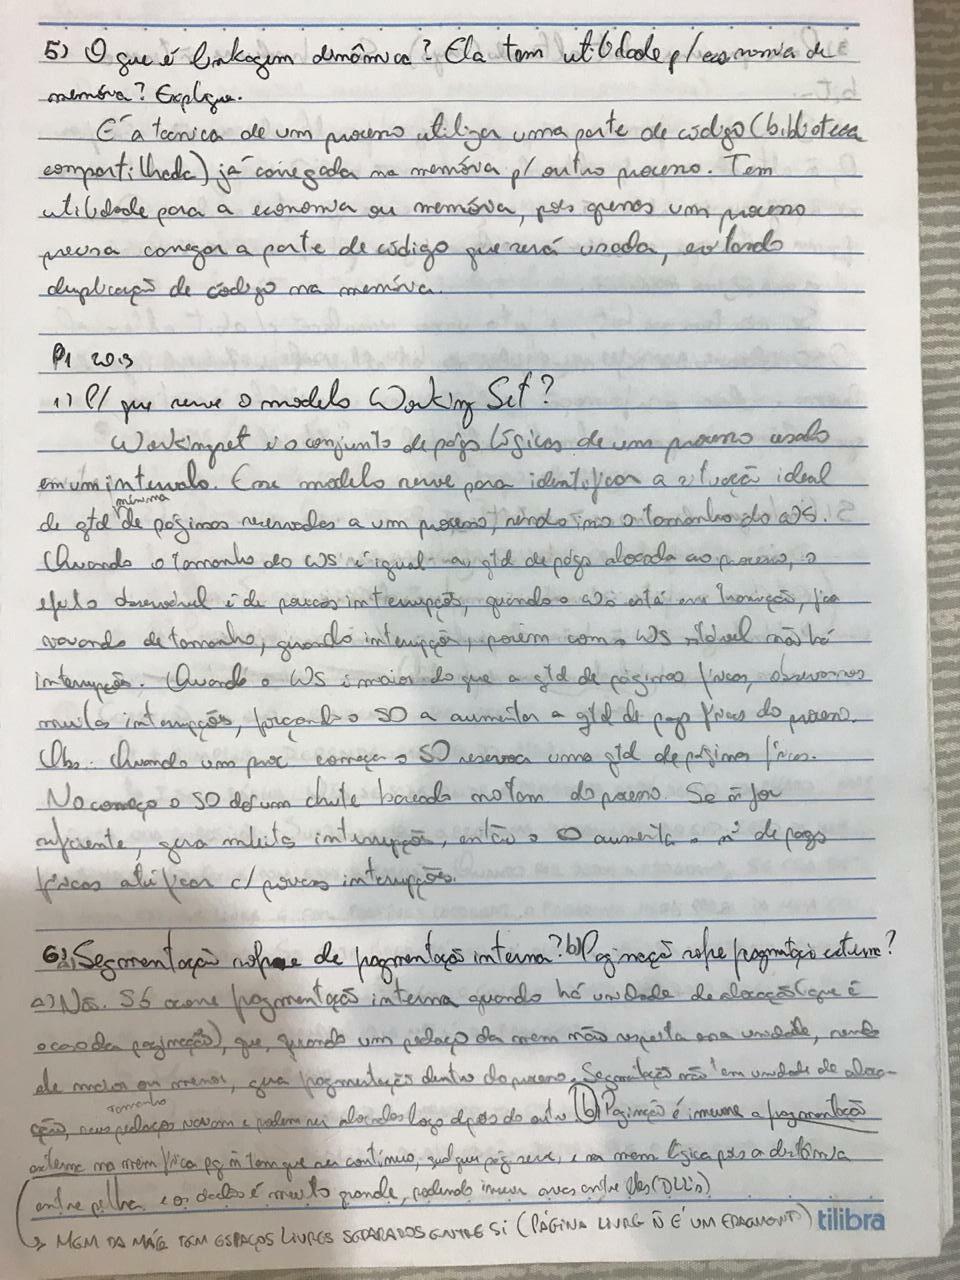 5) O que é linkagem dinâmica? Ela tem utilidade p/ economia de
memória? Explique.
É a técnica de um processo utilizar uma parte de código (biblioteca
compartilhada) já carregada na memória p/ outro processo. Tem
utilidade para a economia ou memória, pois apenas um processo
precisa carregar a parte de código que será usada, evitando
duplicação de código na memória.
P1 2013
1) P/ que serve o modelo Working Set?
Working set é o conjunto de págs lógicas de um processo usado
em um intervalo. Esse modelo serve para identificar a situação ideal
de qtd mínima de páginas reservadas a um processo, sendo isso o tamanho do WS.
Quando o tamanho do WS é igual a qtd de págs alocada ao processo, o
efeito desejável é de poucas interrupções, quando o WS está em transição, fica
variando de tamanho, gerando interrupção, porém com o WS estável não há
interrupção. Quando o WS é maior do que a qtd de páginas físicas, observamos
muitas interrupções, forçando o SO a aumentar a qtd de pags físicas do processo.
Obs: Quando um proc começa o SO reserva uma qtd de páginas físicas.
No começo o SO dá um chute baseado no tam do processo. Se ñ for
suficiente, gera muitas interrupções, então o SO aumenta o nº de pags
físicas até ficar c/ poucas interrupções.
6) a) Segmentação sofre de fragmentação interna? b) Paginação sofre fragmentação externa?
a) Não. Só ocorre fragmentação interna quando há unidade de alocação (que é
o caso da paginação), que, quando um pedaço da mem não respeita essa unidade, sendo
ele maior ou menor, gera fragmentação dentro do processo. Segmentação não tem unidade de aloca-
ção, seus pedaços tamanho variam e podem ser alocados logo depois do outro. b) Paginação é imune a fragmentação
externa na mem física pq ñ tem que ser contínuo, qualquer pág serve, e na mem lógica pois a distância
entre pilha e os dados é muito grande, podendo inserir areas entre eles (DLL's)
→ MEM DA MÁQ TEM ESPAÇOS LIVRES SEPARADOS ENTRE SI (PÁGINA LIVRE Ñ É UM FRAGMENTO)
tilibra